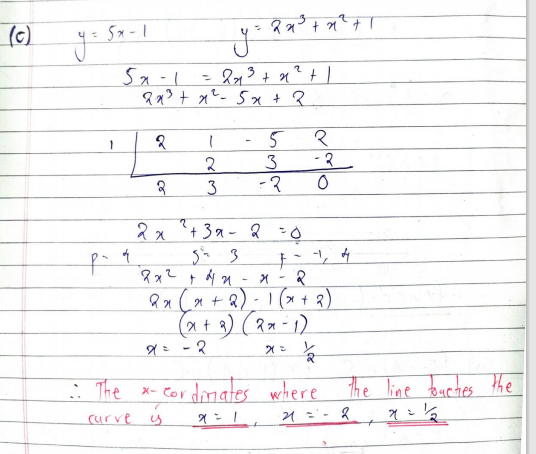 (c) y = 5x - 1 y = 2x³ + x² + 1
5x - 1 = 2x³ + x² + 1
2x³ + x² - 5x + 2
1 2 1 - 5 2
2 3 -2
2 3 -2 0
2x² + 3x - 2 = 0
p - 4 S = 3 f - -1, 4
2x² + 4x - x - 2
2x (x + 2) - 1 (x + 2)
(x + 2) (2x - 1)
x = - 2 x = 1/2
∴ The x-cordinates where the line touches the
curve is x = 1, x = - 2, x = 1/2